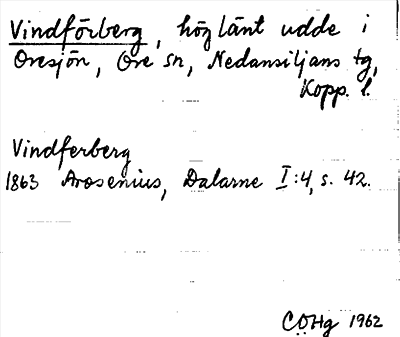 Vindförberg, höglänt udde i
Oresjön, Ore sn, Nedansiljans tg,
Kopp. l.
Vindferberg
1863 Arosenius, Dalarne I:4, s. 42.
COHg 1962